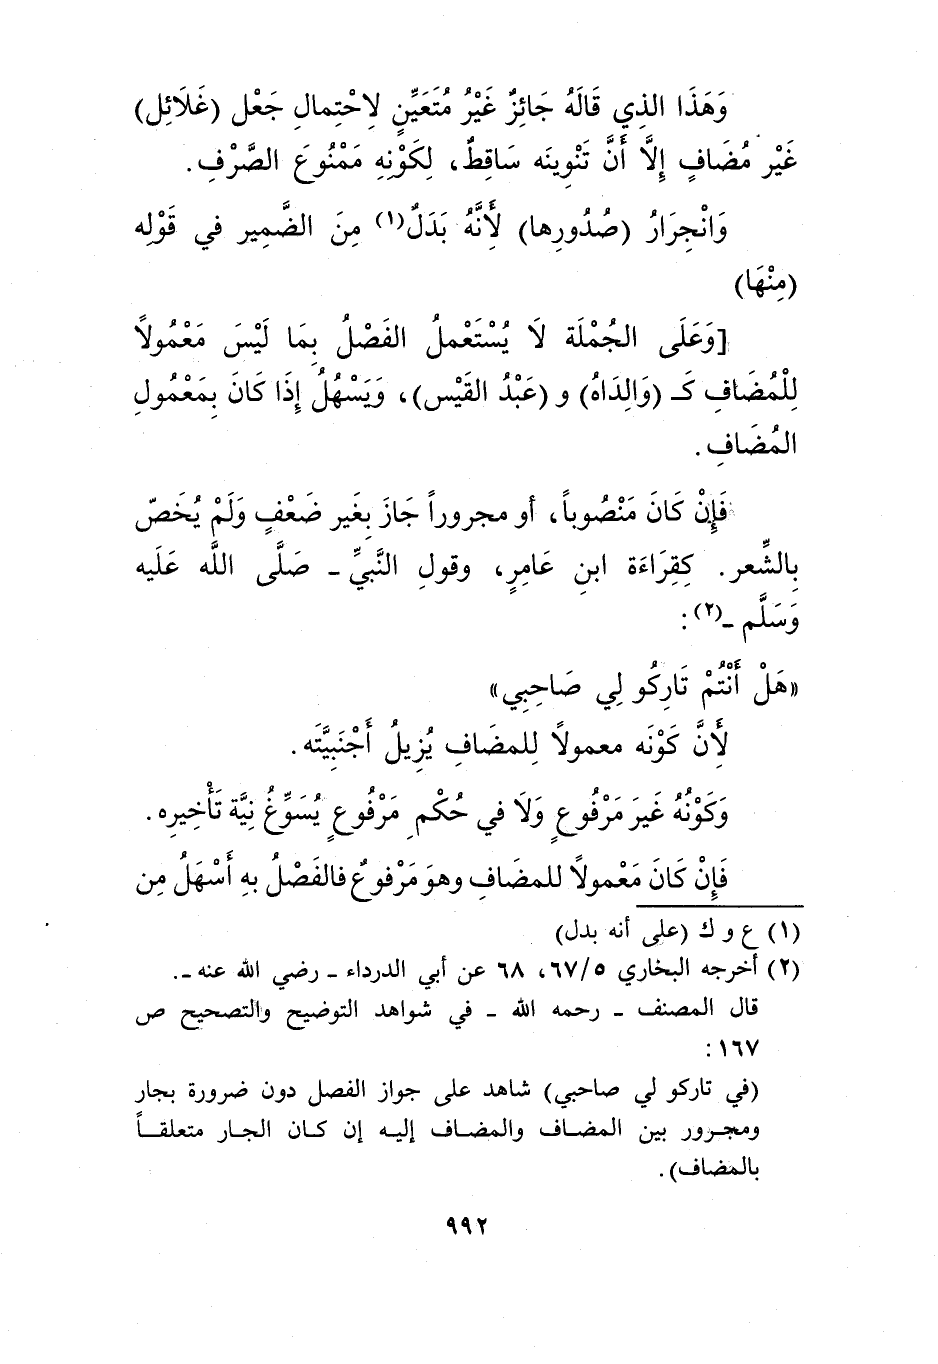 وَهَذَا الذِي قَالَهُ جَائِزٌ غَيْرُ مُتَعَيِّنٍ لِاحْتِمالِ جَعْل (غَلَائِل)
غَيْر مُضَافٍ إِلَّا أَنَّ تَنْوِينَه سَاقِطٌ، لِكَوْنِهِ مَمْنُوعَ الصَّرْفِ.
وَانْجِرَارُ (صُدُورِها) لِأَنَّهُ بَدَلٌ(١) مِنَ الضَّمِير في قَوْلِه
(مِنْهَا)
[وَعَلَى الجُمْلَة لَا يُسْتَعْملُ الفَصْلُ بِمَا لَيْسَ مَعْمُولاً
لِلْمُضَافِ كَـ (وَالِدَاهُ) و (عَبْدُ القَيْس)، وَيَسْهُلُ إِذَا كَانَ بِمَعْمُولِ
المُضَافِ.
فَإِنْ كَانَ مَنْصُوباً، أو مجروراً جَازَ بِغَير ضَعْفٍ وَلَمْ يُخَصّ
بِالشِّعر. كِقِرَاءَة ابنِ عَامِرٍ، وقولِ النَّبيِّ - صَلَّى اللَّه عَلَيه
وَسَلَّم -(٢):
«هَلْ أَنْتُمْ تَارِكُو لِي صَاحِبِي»
لِأَنَّ كَوْنَه معمولاً لِلمضَافِ يُزِيلُ أَجْنَبِيَّتَه.
وَكَوْنُهُ غَيرَ مَرْفُوعٍ وَلَا في حُكْمِ مَرْفُوعٍ يُسَوِّغُ نِيَّة تَأْخِيرِه.
فَإِنْ كَانَ مَعْمولاً للمضَافِ وهوَ مَرْفوعٌ فالفَصْلُ بِهِ أَسْهَلُ مِن
(١) ع و ك (على أنه بدل)
(٢) أخرجه البخاري ٦٧/٥، ٦٨ عن أبي الدرداء - رضي الله عنه -.
قال المصنف - رحمه الله - في شواهد التوضيح والتصحيح ص
١٦٧:
(في تاركو لي صاحبي) شاهد على جواز الفصل دون ضرورة بجار
ومجرور بين المضاف والمضاف إليه إن كان الجار متعلقاً
بالمضاف).
٩٩٢